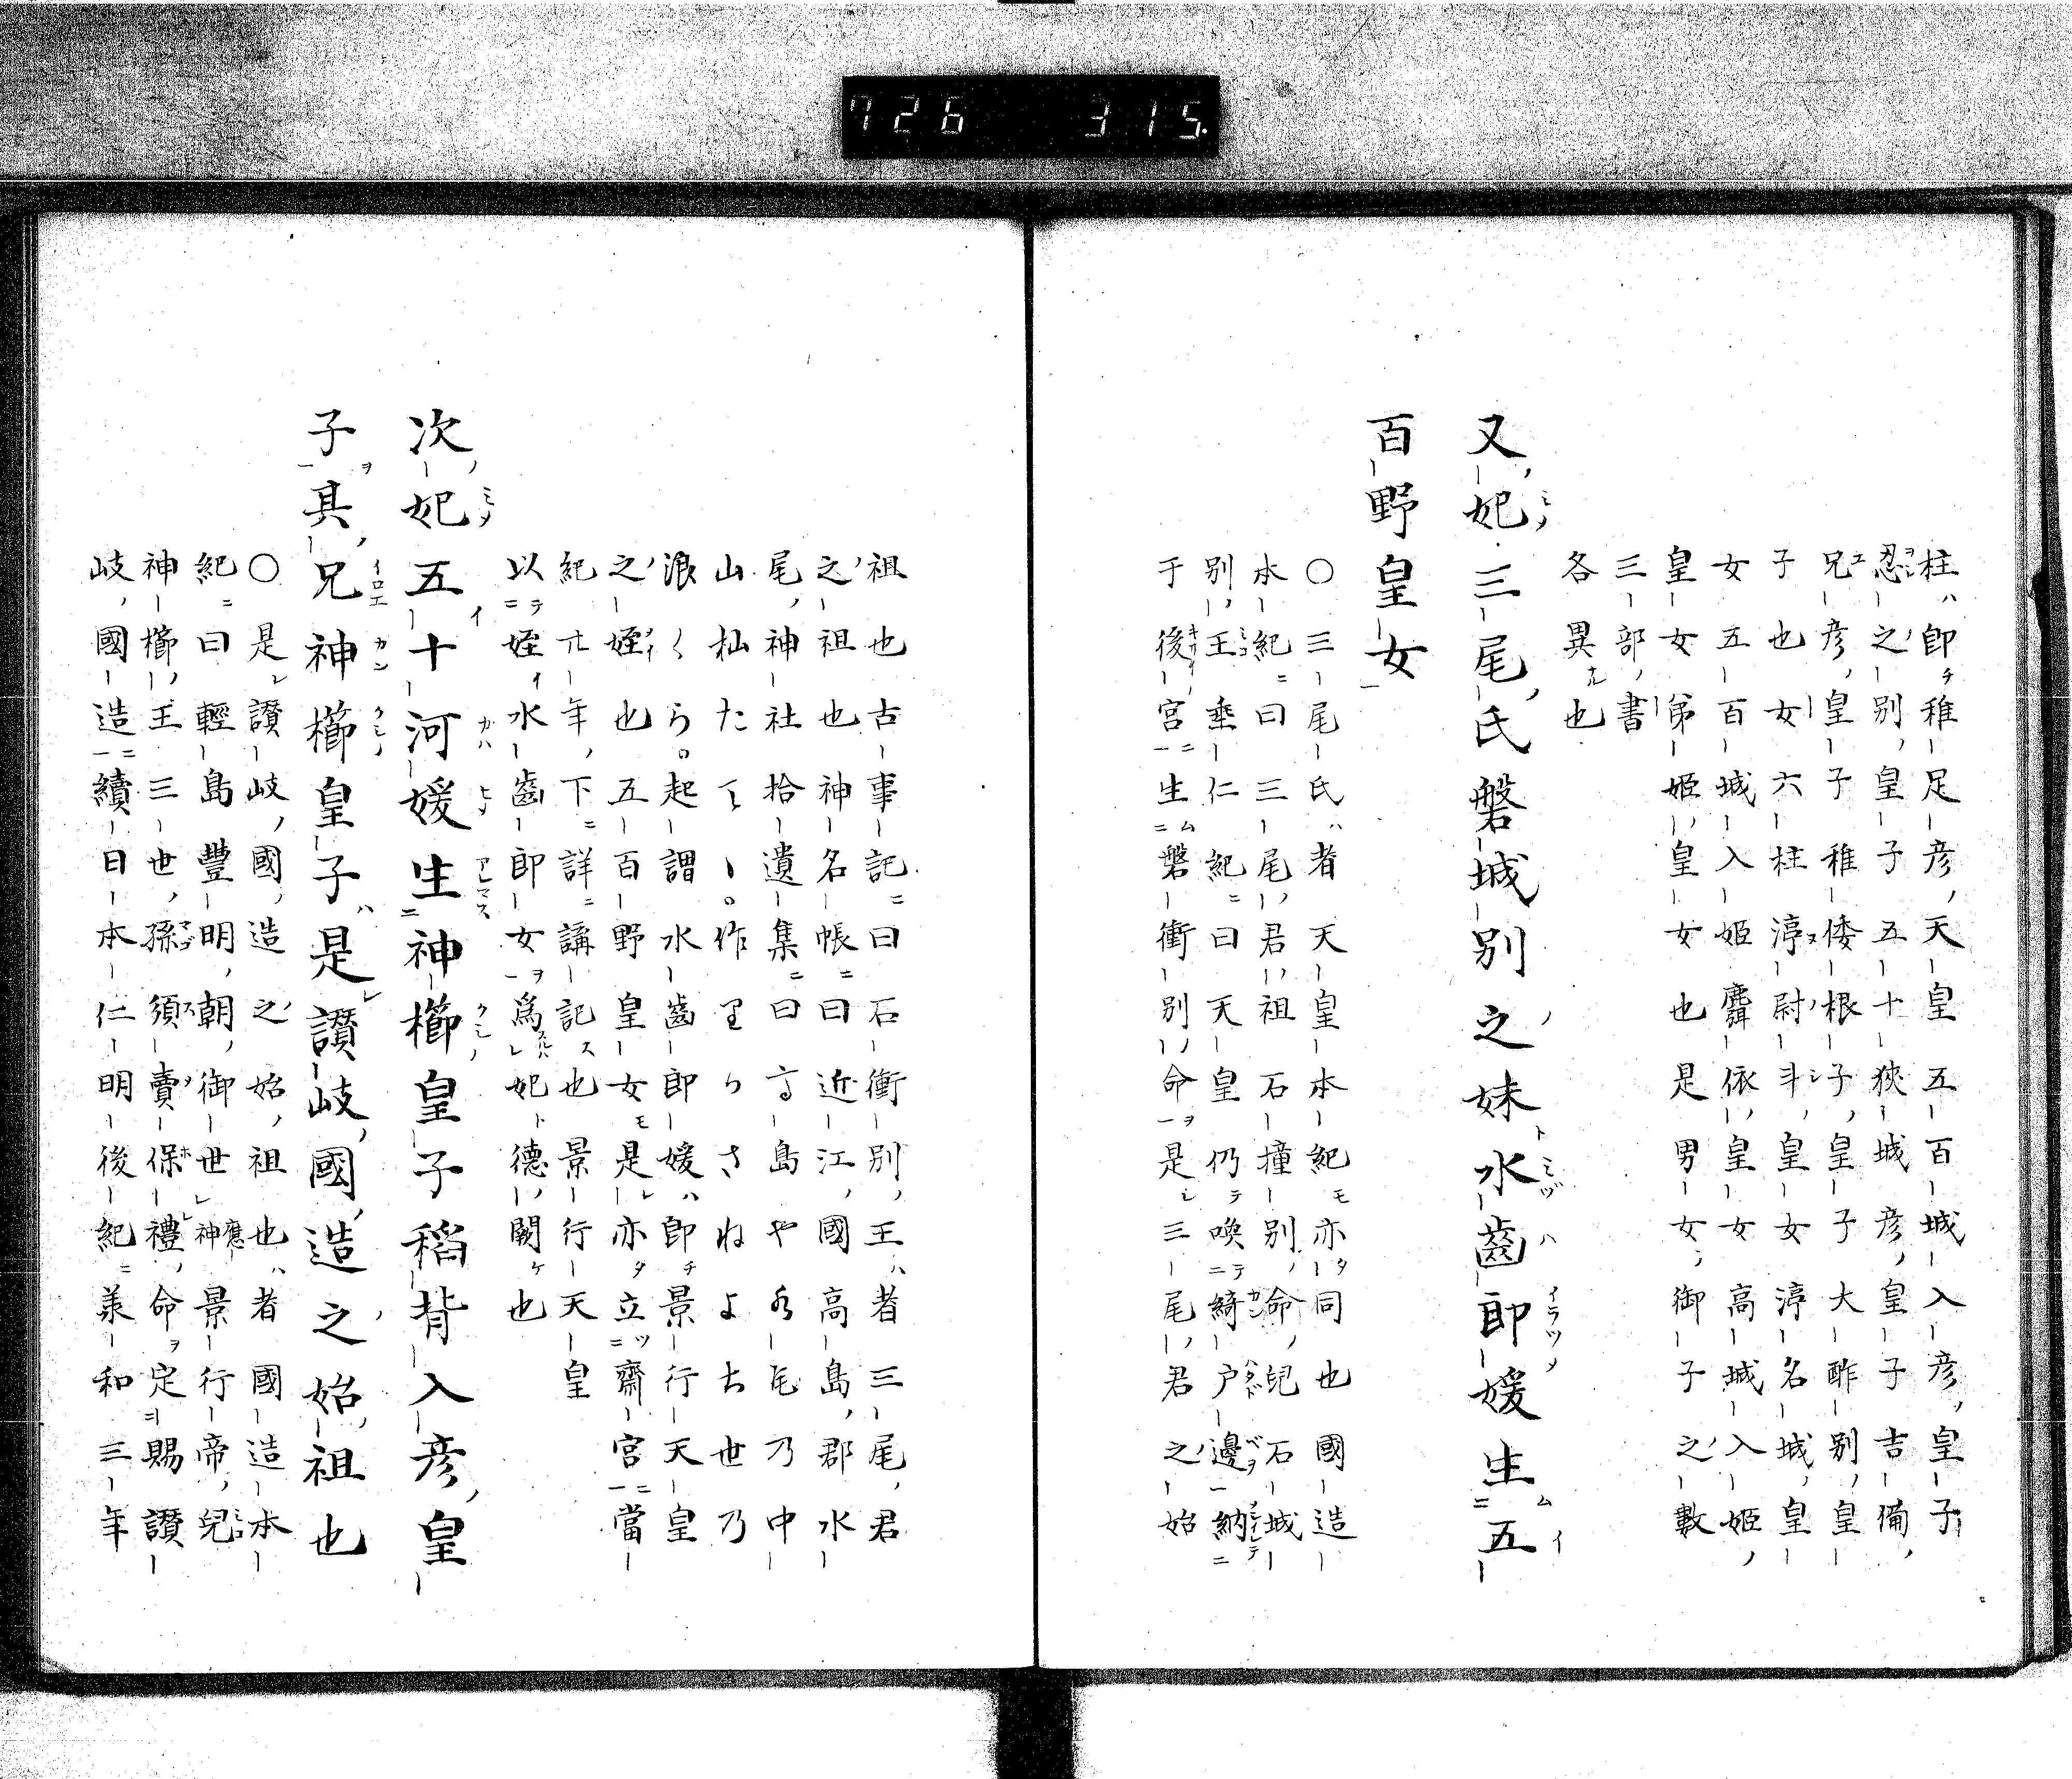 726 315
柱ハ即チ稚足彦天皇五百城入彦皇子
忍之別皇子五十狹城彦皇子吉備
兄彦皇子稚倭根子皇子大酢別皇
子也女六柱渟尉斗皇女渟名城皇
女五百城入姫麛依皇女高城入姫
皇女弟姫皇女也是男女御子之數
三部書
各異ナル也
又妃三尾氏磐城別之妹水齒郎媛生五
百野皇女
○三尾氏ハ者天皇本紀モ亦タ同也國造
本紀ニ曰三尾君祖石撞別命兒石城
別王垂仁紀ニ曰天皇仍テ喚テ綺戸邊納
于後宮ニ生ム磐衝別命ヲ是レ三尾君之始
祖也古事記ニ曰石衝別王ハ者三尾君
之祖也神名帳ニ曰近江國高島郡水
尾神社拾遺集ニ曰高島や水尾乃中
山杣たてゝ作りかさねよち世乃
浪くら起謂水齒郎媛ハ即チ景行天皇
之姪也五百野皇女モ是レ亦タ立ツ齋宮ニ當
紀廿年下ニ詳ニ講記ス也景行天皇
以テ姪水齒郎女ヲ爲妃ト德闕ケ也
次妃五十河媛生神櫛皇子稻背入彦皇
子ヲ其兄神櫛皇子ハ是讃岐國造之始祖也
○是レ讃岐國造之始祖也ハ者國造本
紀ニ曰輕島豐明朝御世應神景行帝兒
神櫛王三世孫須賣保禮命ヲ定賜讃
岐國造ニ續日本仁明後紀ニ義和三年